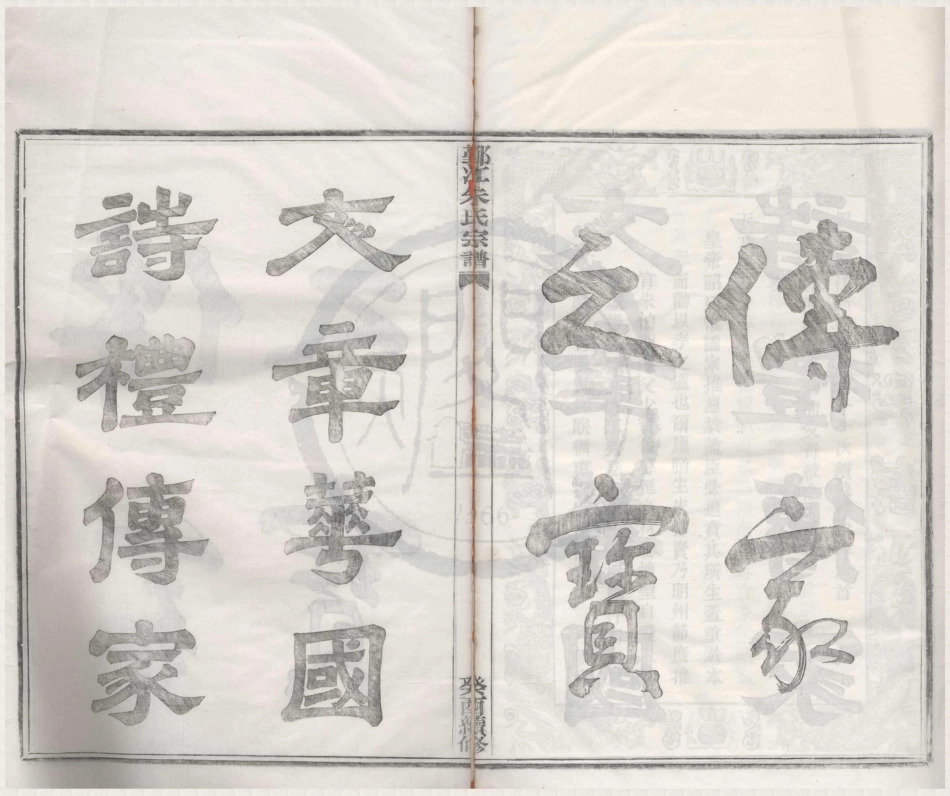 傳家
之寶
鄞江朱氏宗譜
癸酉續修
文章華國
詩禮傳家